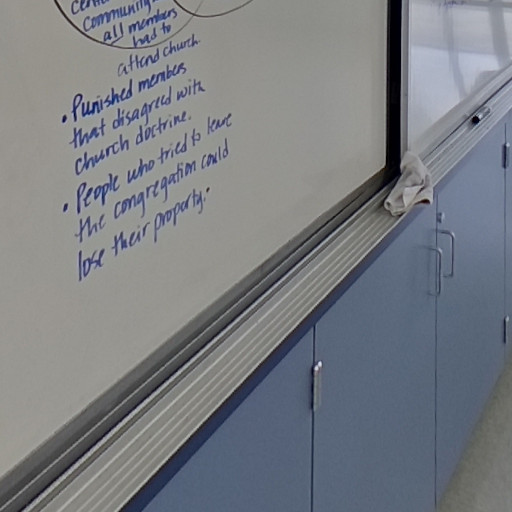 community
all members
had to
attend church.
• Punished members
that disagreed with
church doctrine.
• People who tried to leave
the congregation could
lose their property.